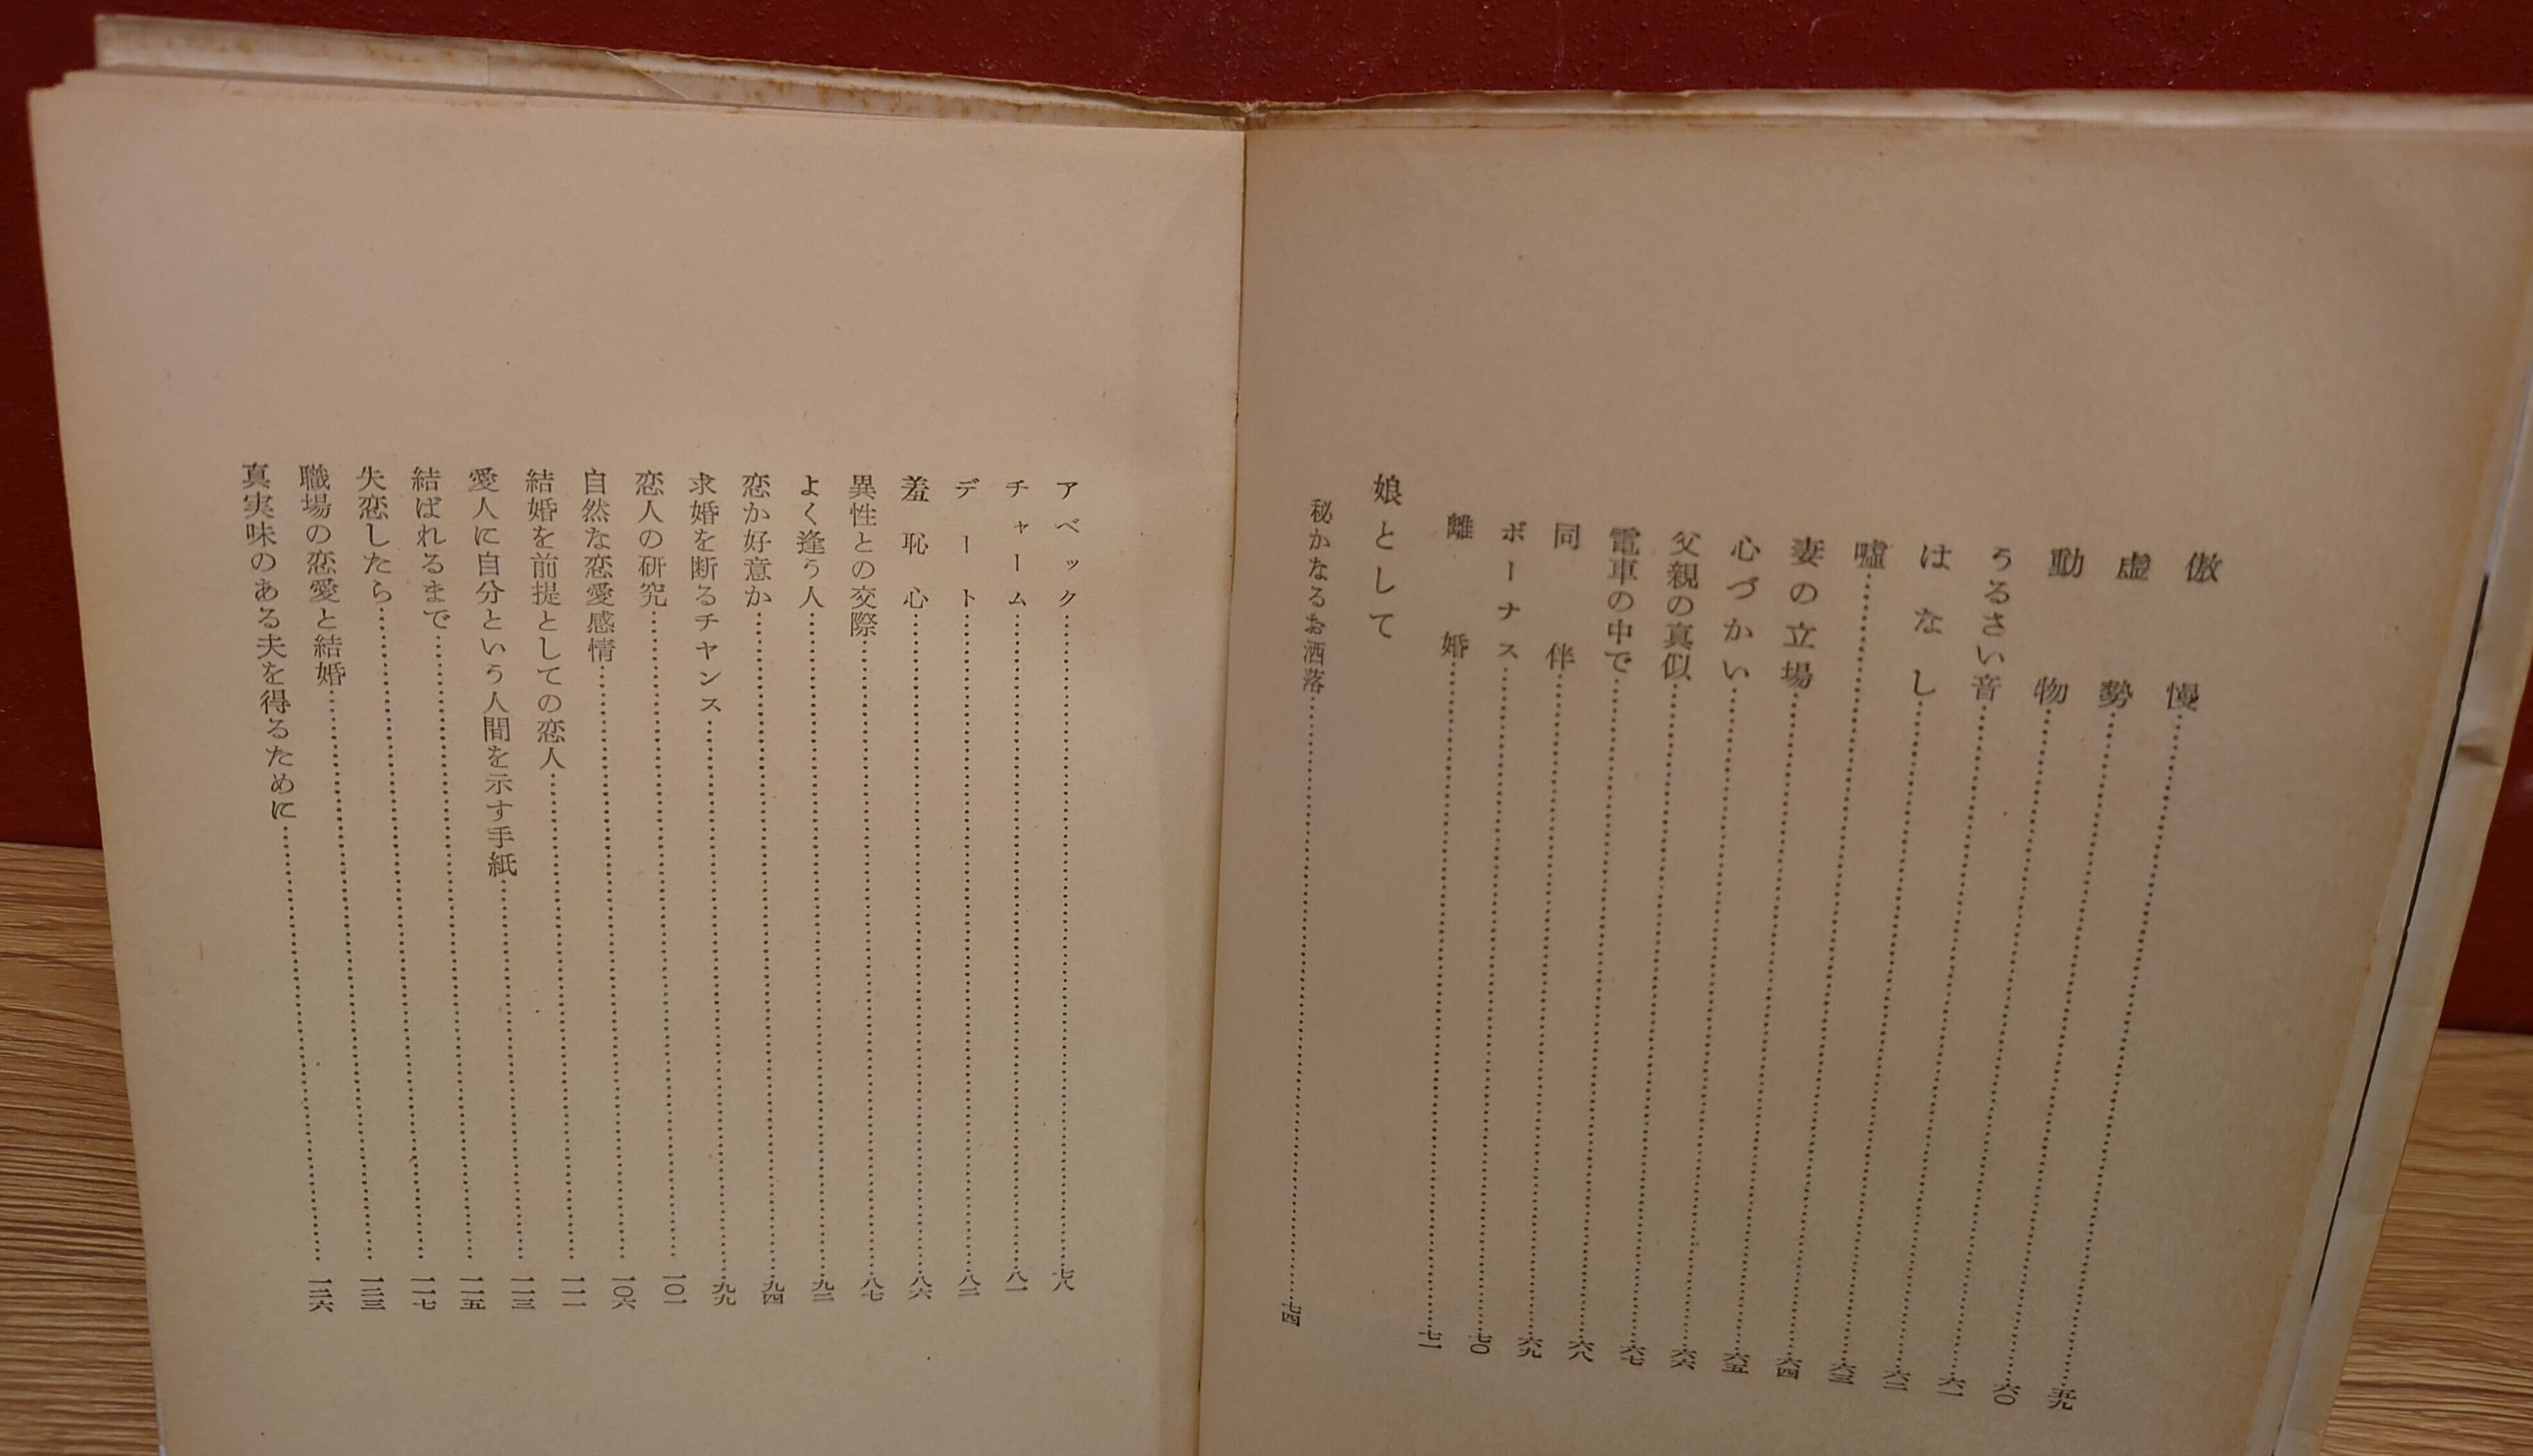 傲慢……五九
虚勢……六〇
動物……六一
うるさい音……六二
はなし……六三
嘘……六四
妻の立場……六五
心づかい……六六
父親の真似……六七
電車の中で……六八
同伴……六九
ボーナス……七〇
離婚……七一
娘として
秘かなるお洒落……七四
アベック……七八
チャーム……八一
デート……八三
羞恥心……八六
異性との交際……八七
よく逢う人……九二
恋か好意か……九四
求婚を断るチャンス……九九
恋人の研究……一〇一
自然な恋愛感情……一〇六
結婚を前提としての恋人……一一一
愛人に自分という人間を示す手紙……一一三
結ばれるまで……一一五
失恋したら……一一七
職場の恋愛と結婚……一二三
真実味のある夫を得るために……一二六